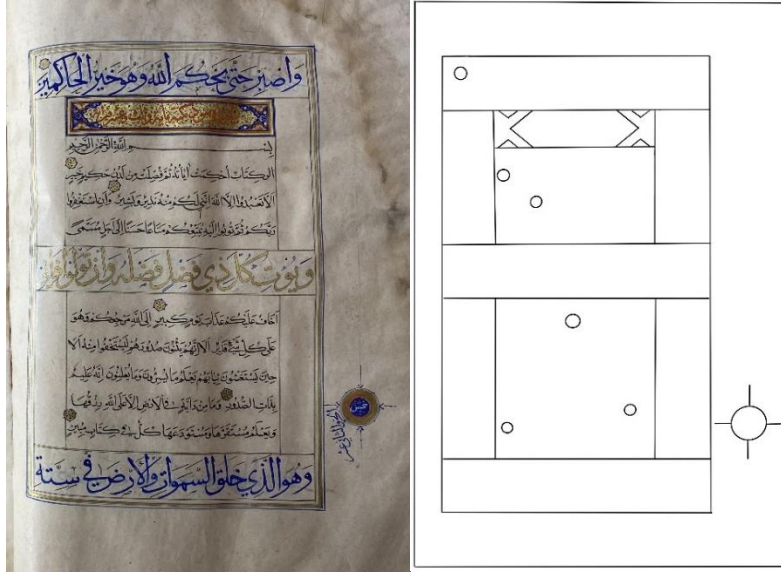 وَاصْبِرْ حَتَّى يَحْكُمَ اللَّهُ وَهُوَ خَيْرُ الْحَاكِمِينَ
بِسْمِ اللَّهِ الرَّحْمَنِ الرَّحِيمِ
الر كِتَابٌ أُحْكِمَتْ آيَاتُهُ ثُمَّ فُصِّلَتْ مِنْ لَدُنْ حَكِيمٍ خَبِيرٍ
أَلَّا تَعْبُدُوا إِلَّا اللَّهَ إِنَّنِي لَكُمْ مِنْهُ نَذِيرٌ وَبَشِيرٌ وَأَنِ اسْتَغْفِرُوا
رَبَّكُمْ ثُمَّ تُوبُوا إِلَيْهِ يُمَتِّعْكُمْ مَتَاعًا حَسَنًا إِلَى أَجَلٍ مُسَمًّى
وَيُؤْتِ كُلَّ ذِي فَضْلٍ فَضْلَهُ وَإِنْ تَوَلَّوْا فَإِنِّي
أَخَافُ عَلَيْكُمْ عَذَابَ يَوْمٍ كَبِيرٍ إِلَى اللَّهِ مَرْجِعُكُمْ وَهُوَ
عَلَى كُلِّ شَيْءٍ قَدِيرٌ أَلَا إِنَّهُمْ يَثْنُونَ صُدُورَهُمْ لِيَسْتَخْفُوا مِنْهُ أَلَا
حِينَ يَسْتَغْشُونَ ثِيَابَهُمْ يَعْلَمُ مَا يُسِرُّونَ وَمَا يُعْلِنُونَ إِنَّهُ عَلِيمٌ
بِذَاتِ الصُّدُورِ وَمَا مِنْ دَابَّةٍ فِي الْأَرْضِ إِلَّا عَلَى اللَّهِ رِزْقُهَا
وَيَعْلَمُ مُسْتَقَرَّهَا وَمُسْتَوْدَعَهَا كُلٌّ فِي كِتَابٍ مُبِينٍ
وَهُوَ الَّذِي خَلَقَ السَّمَوَاتِ وَالْأَرْضَ فِي سِتَّةِ